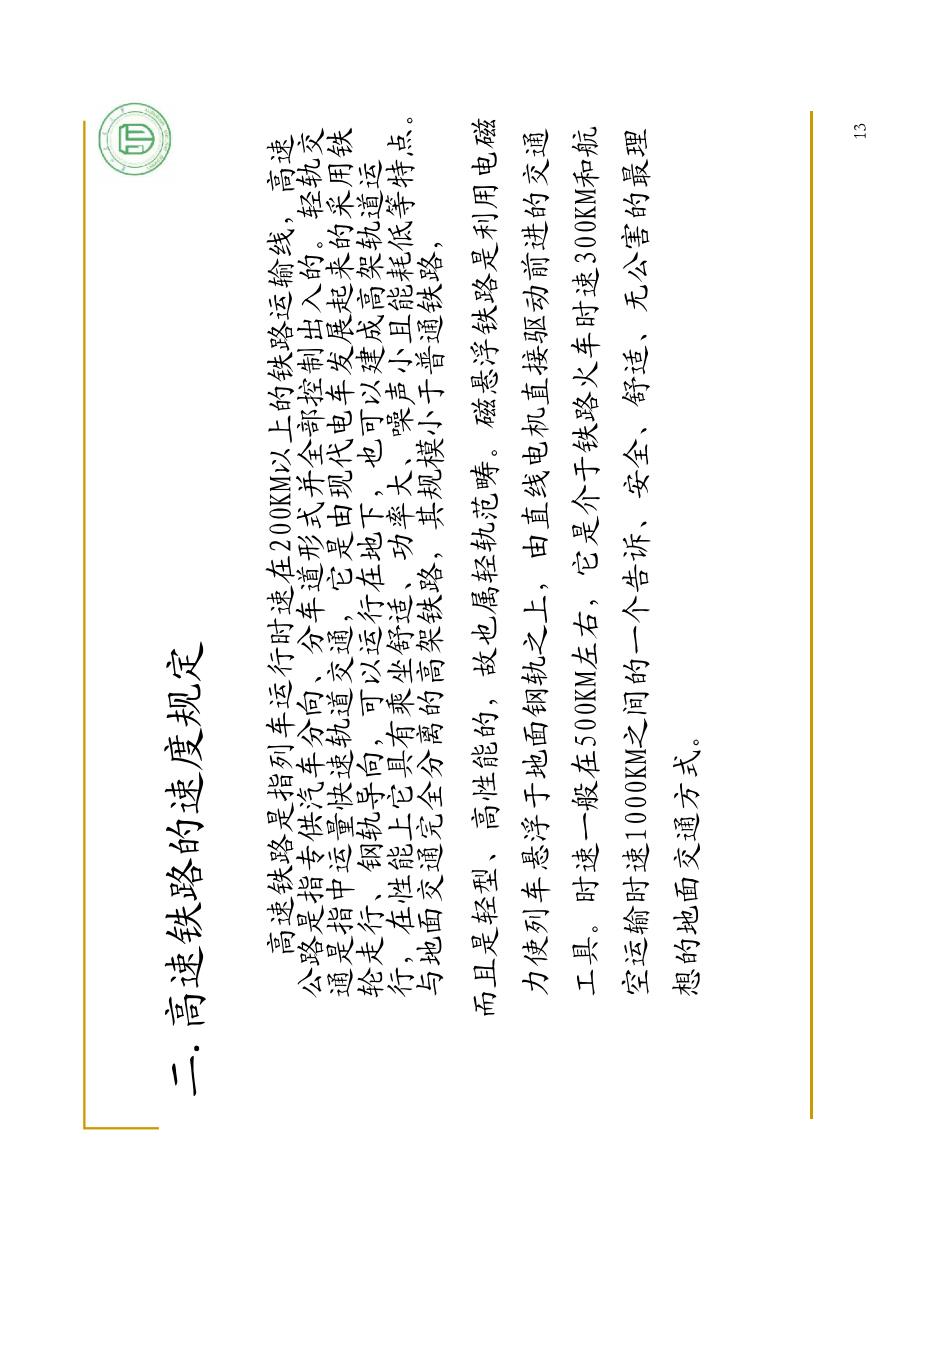 二.高速铁路的速度规定
高速铁路是指列车运行时速在200KM以上的铁路运输线，高速
公路是指专供汽车分向、分车道形式并全部控制出入的。轻轨交
通是指中运量快速轨道交通，它是由现代电车发展起来的采用铁
轮走行、钢轨导向，可以运行在地下，也可以建成高架轨道运
行，在性能上它具有乘坐舒适、功率大、噪声小且能耗低等特点。
与地面交通完全分离的高架铁路，其规模小于普通铁路，
而且是轻型、高性能的，故也属轻轨范畴。磁悬浮铁路是利用电磁
力使列车悬浮于地面钢轨之上，由直线电机直接驱动前进的交通
工具。时速一般在500KM左右，它是介于铁路火车时速300KM和航
空运输时速1000KM之间的一个告诉、安全、舒适、无公害的最理
想的地面交通方式。
13